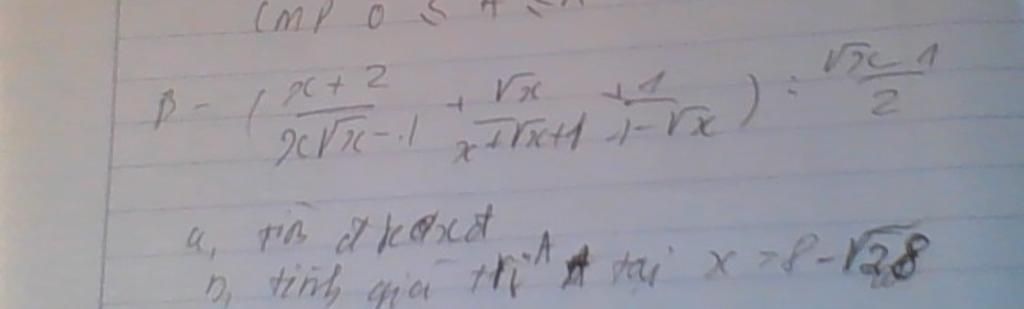 CMR 0 ≤ A ≤
B = ( \frac{x+2}{x\sqrt{x}-1} + \frac{\sqrt{x}}{x+\sqrt{x}+1} + \frac{1}{1-\sqrt{x}} ) : \frac{\sqrt{x}-1}{2}
a, tìm đkxđ
b, tính giá trị A tại x = 8 - \sqrt{28}